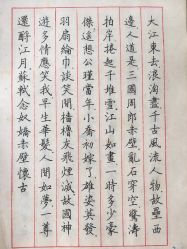 大江東去浪淘盡千古風流人物故壘西
邊人道是三國周郎赤壁亂石穿空驚濤
拍岸捲起千堆雪江山如畫一時多少豪
傑遙想公瑾當年小喬初嫁了雄姿英發
羽扇綸巾談笑間檣櫓灰飛煙滅故國神
遊多情應笑我早生華髮人間如夢一尊
還酹江月蘇軾念奴嬌赤壁懷古